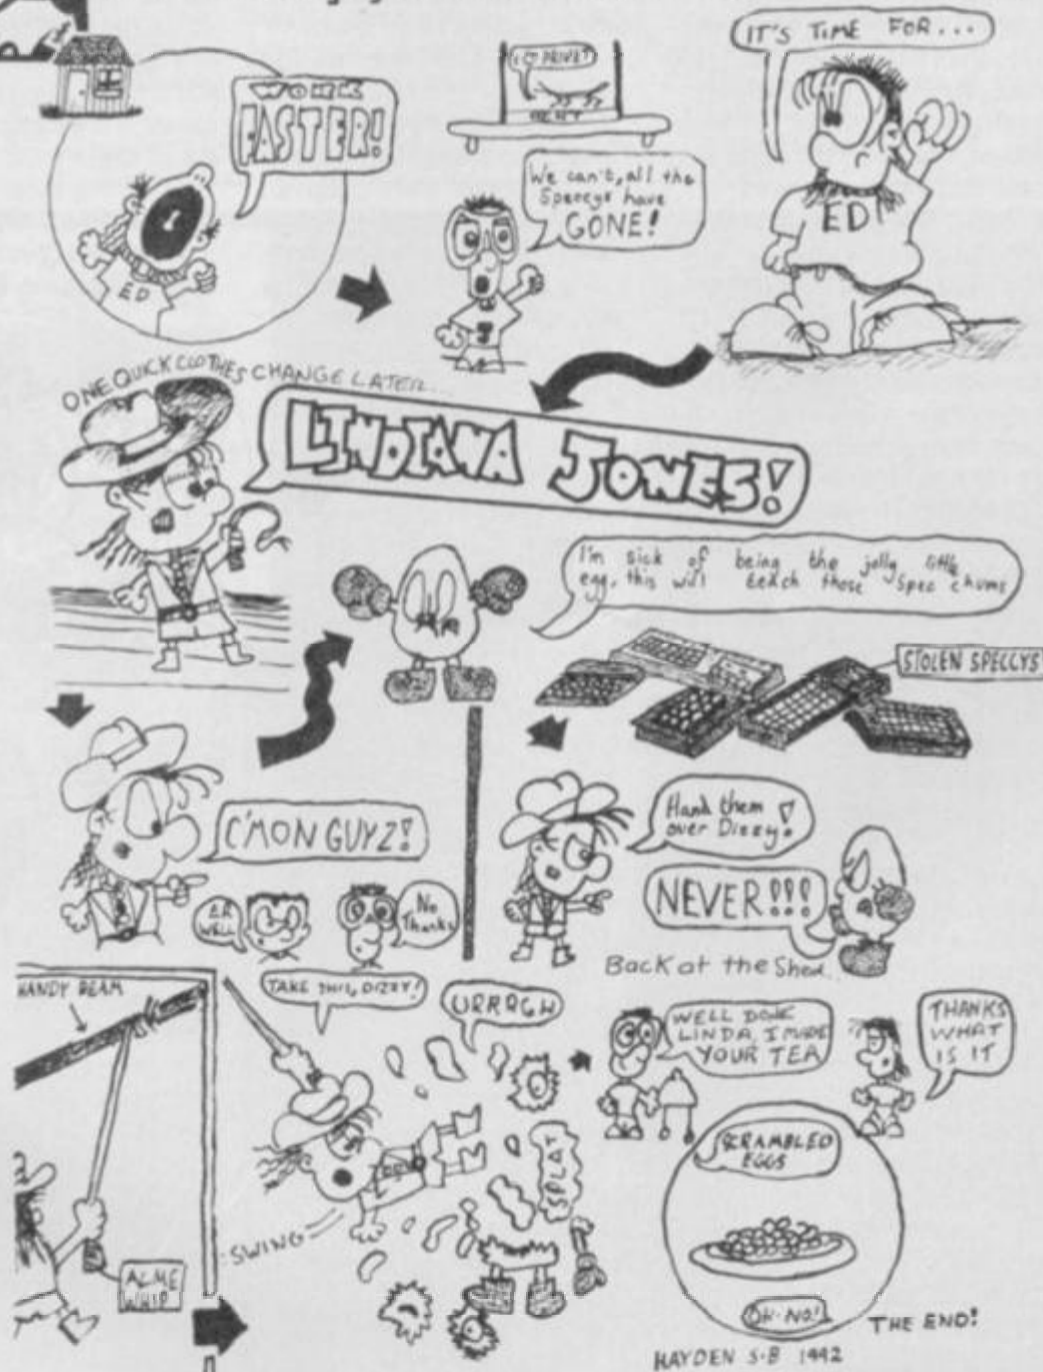 WORK
FASTER!
ED
We can't, all the
Speccys have
GONE!
IT'S TIME FOR...
ED
ONE QUICK CLOTHES CHANGE LATER...
LINDIANA JONES!
I'm sick of being the jolly little
egg, this will teach those Spec chums
STOLEN SPECCYS
C'MON GUYZ!
ER
WELL
No
Thanks
Hand them
over Dizzy!
NEVER!!!
HANDY BEAM
ACME
WHIP
TAKE THIS, DIZZY!
URRRGH
SWING
SPLAT
Back at the Shed..
WELL DONE
LINDA, I MADE
YOUR TEA
THANKS
WHAT
IS IT
SCRAMBLED
EGGS
OH-NO!
THE END!
HAYDEN S-B 1992